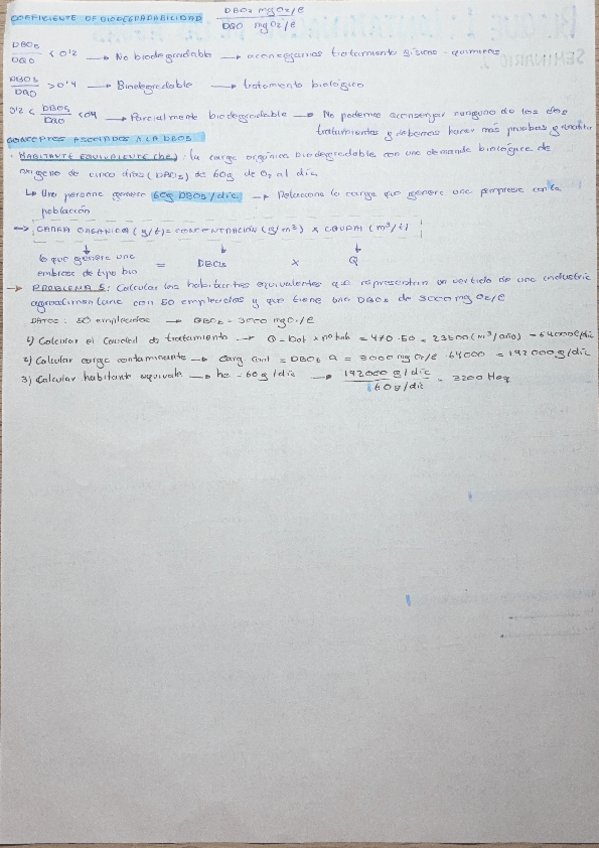 COEFICIENTE DE BIODEGRADABILIDAD DBO₅ mgO₂/l
DQO mgO₂/l
DBO₅
DQO < 0'2 → No biodegradable → tratamiento químicos
DBO₅
DQO > 0'4 → Biodegradable → tratamiento biológico
0'2 < DBO₅
DQO < 04 → Parcialmente biodegradable → No podemos aconsejar ninguno de los dos
tratamientos y debemos hacer más pruebas
CONCEPTOS ASOCIADOS A LA DBO₅
· HABITANTE EQUIVALENTE (he): la carga orgánica biodegradable con una demanda biológica de
oxígeno de cinco días (DBO₅) de 60g de O₂ al día.
↳ Una persona genera 60g DBO₅/día → Relaciona la carga que genera una empresa con la
población
→ CARGA ORGÁNICA (g/t) = CONCENTRACIÓN (g/m³) × CAUDAL (m³/t)
lo que genera una = DBO₅ × Q
empresa de tipo bio
→ PROBLEMA 5: Calcular los habitantes equivalentes que representan un vertido de una industria
agroalimentaria con 50 empleados y que tiene una DBO₅ de 3000 mg O₂/l
DATOS: 50 empleados → DBO₅ = 3000 mg O₂/l
1) Calcular el caudal de tratamiento → Q = Dot × nº hab = 470 · 50 = 23500 (m³/año) = 64000 l/dic
2) Calcular carga contaminante → Carg. cont = DBO₅ · Q = 3000 mg O₂/l · 64000 = 192000 g/dic
3) Calcular habitante equivale → he = 60g/dic → 192000 g/dic
60g/dic = 3200 Heq